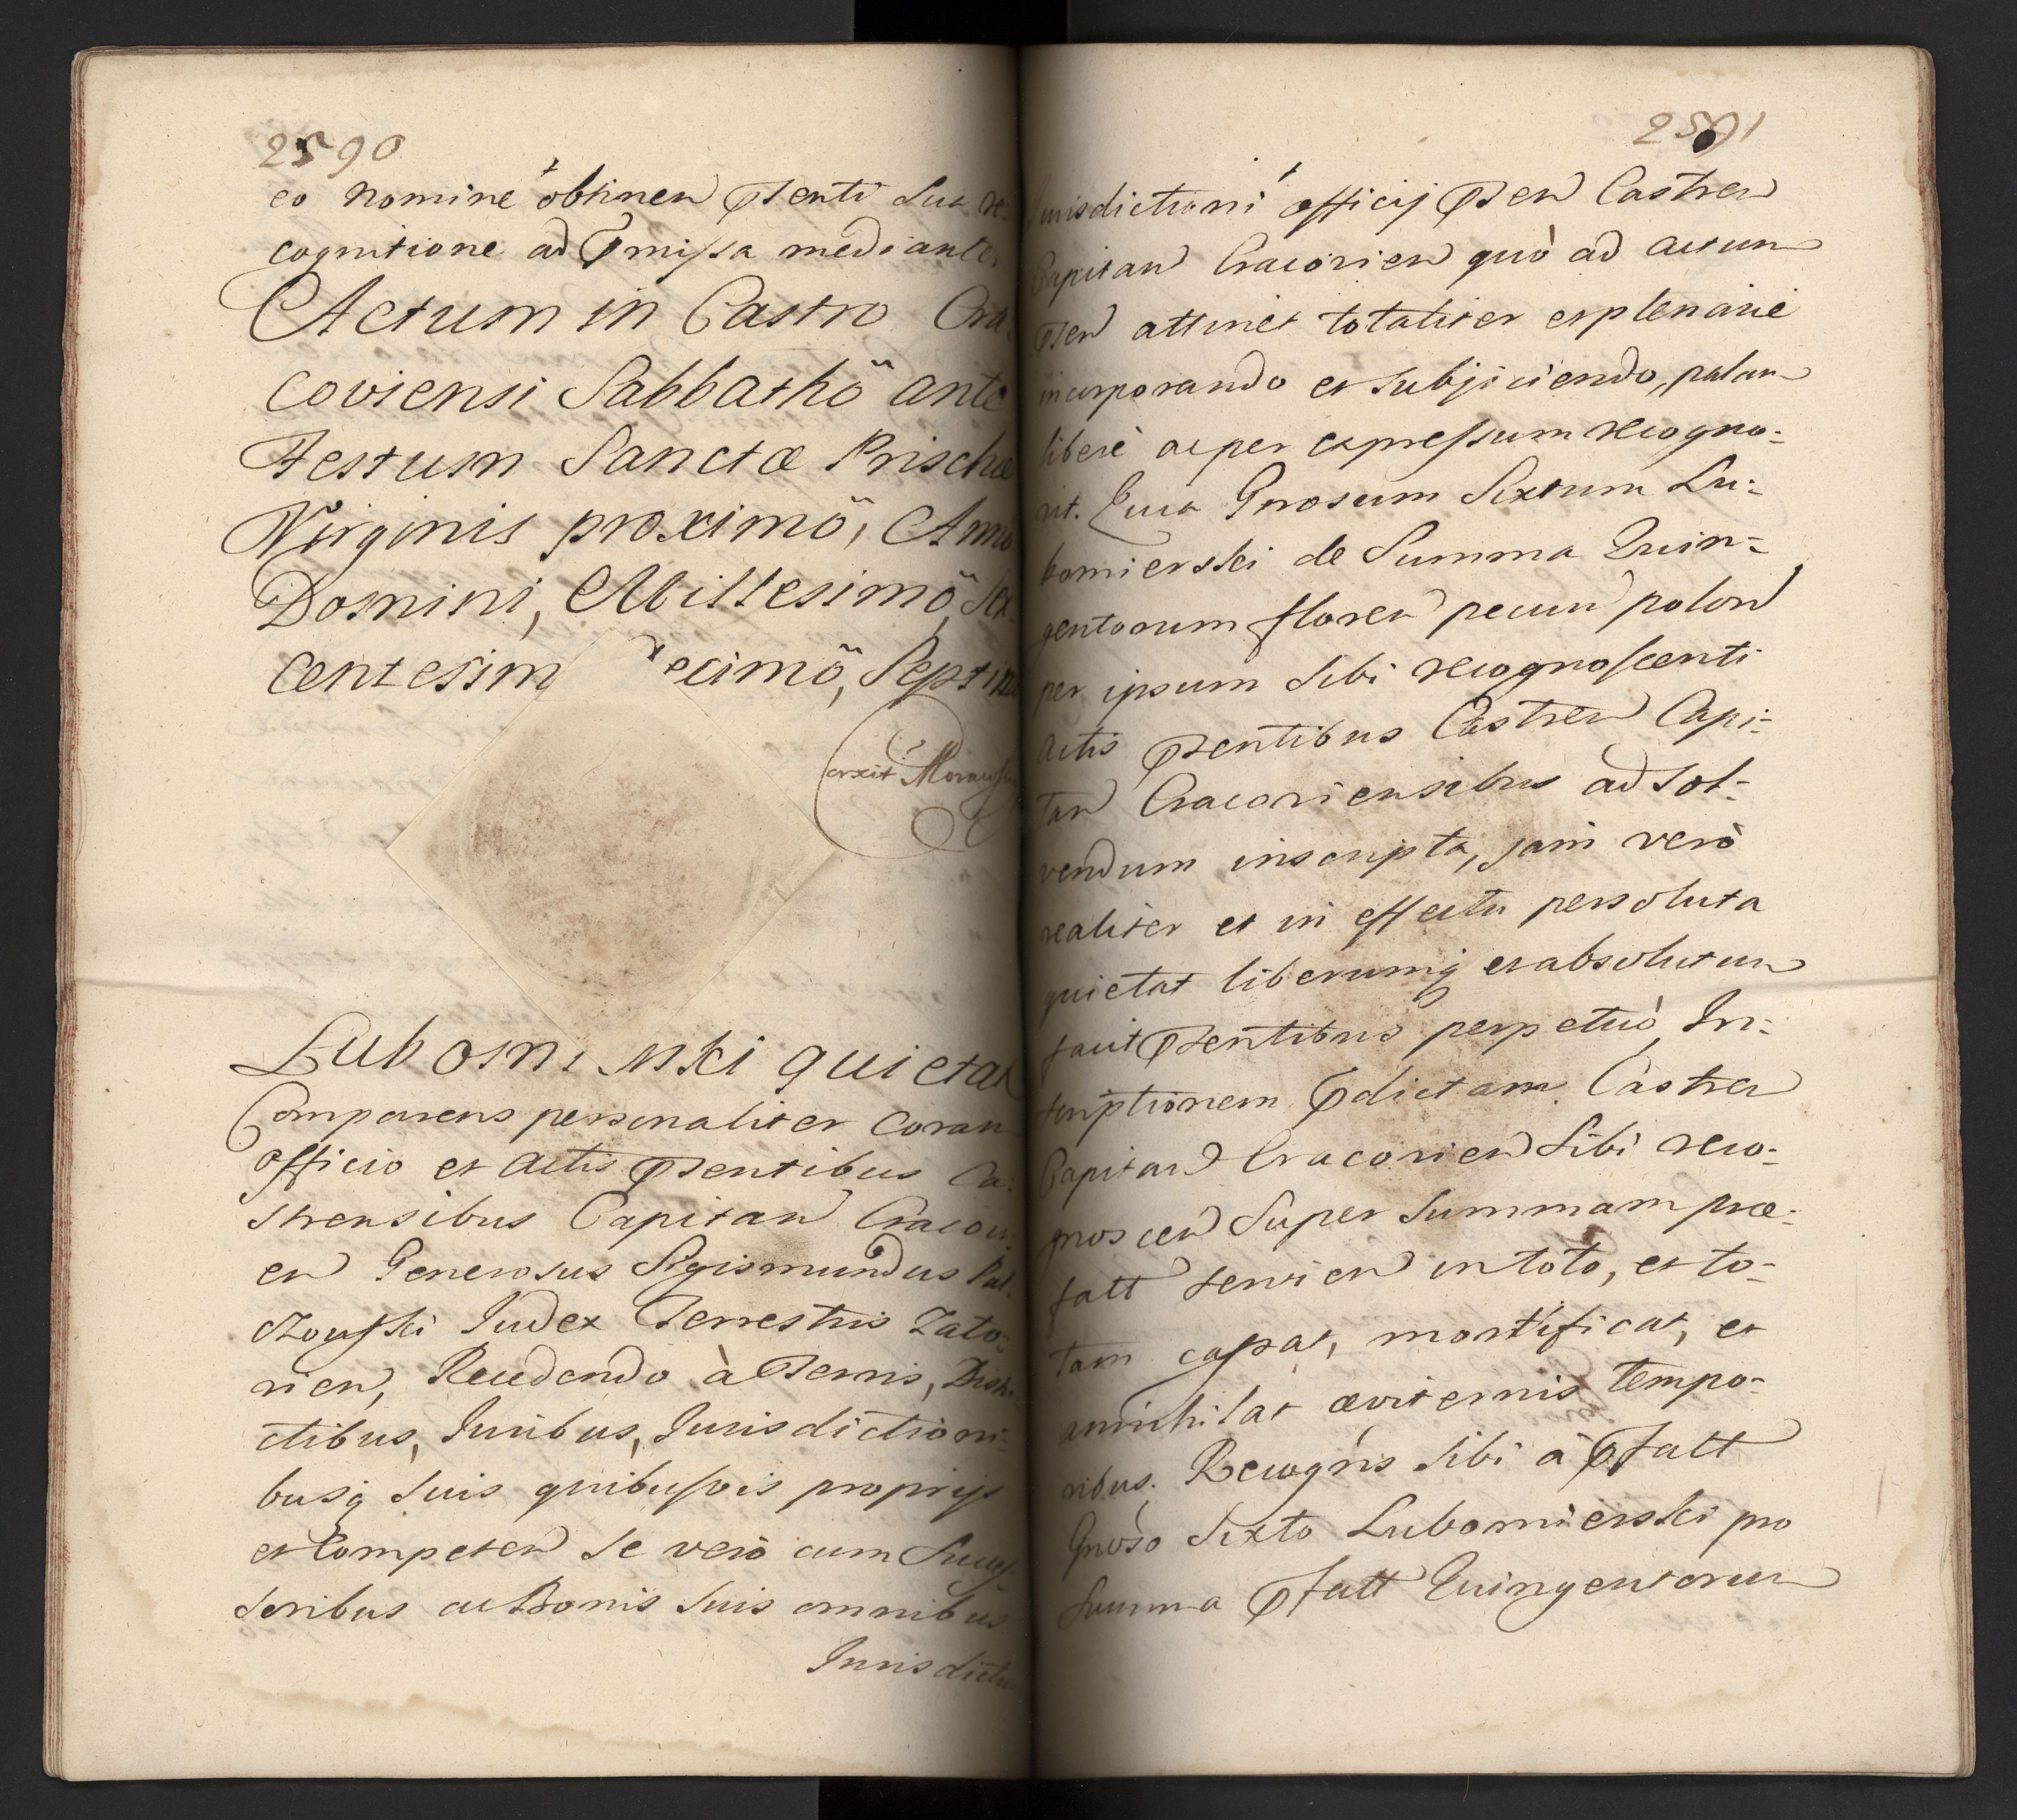 2590
eo nomine obtinen pnsenti sua re
cognitione ad pmissa mediante
Actum in Castro Cra
coviensi Sabbathô ante
Festum Sanctæ Prischæ
Virginis proximô, Anno
Domini, Millesimô, Sex
centesim ecimô, Septim
Correxit
Lubom rski quietat
Comparens personaliter coram
Officio et Actis psentibus Ca:
strensibus Capitan Cracovi
en Generosus Sigismundus Pal
czowski Judex Terrestris Zato
rien, Recedendo à Terris, Distri
ctibus, Juribus, Jurisdictioni:
busq suis quibusvis propriis
et Competen se verò cum Succes
soribus ac Bonis suis omnibus
Jurisdictio
2591
Jurisdictioni officij psen Castren
Capitan Cracovien quò ad actum
psen attinet totaliter et plenariè
incorporando et subjiciendo, palam
liberè ac per expressum recogno:
vit. Quia Gnrosum Sixtum Lu:
bomierski de Summa Quin:
gentorum floren pecun polon
per ipsum sibi recognoscenti
Actis psentibus Castren Capi:
tan Cracoviensibus ad sol:
vendum inscripta, jam verò
realiter et in effectu persoluta
quietat liberumq et absolutum
facit psentibus perpetuò, In:
scriptionem pdictam Castren
Capitan Cracovien sibi reco:
gnoscen super summam præ:
fatt servien in toto, et to:
tam cassat, mortificat, et
annihilat æviternis tempo:
ribus. Recogns sibi à pfatt
Gnroso Sixto Lubomierski pro
summa pfatt Quingentorum